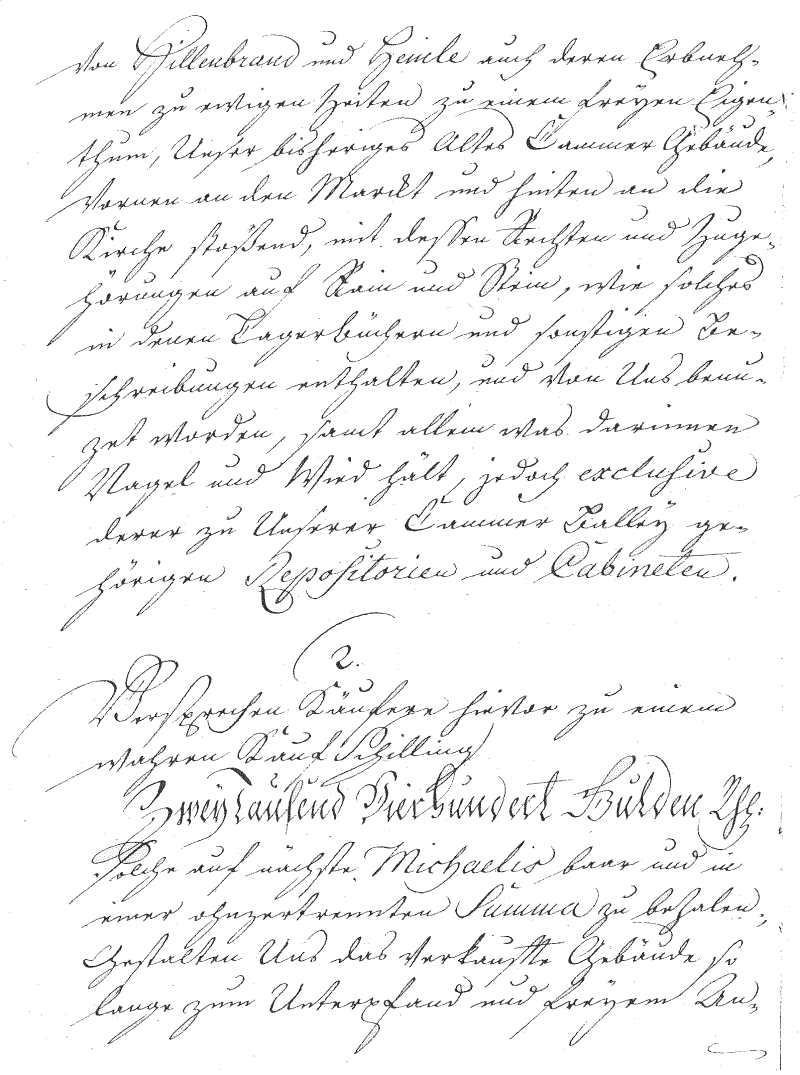 von Hillenbrand und Henle auch deren Erbneh-
men zu ewigen Zeiten zu einem freyen Eigen-
thum, Unser bisheriges Altes Cammer Gebäude,
Vornen an den Marckt und hinten an die
Kirche stoßend, mit dessen Rechten und Zuge-
hörungen auf Rain und Stein, wie solches
in denen Lagerbüchern und sonstigen Be-
schreibungen enthalten, und von Uns benu-
zet worden, samt allem was darinnen
Nagel und Wied hält, jedoch exclusive
derer zu Unserer Cammer Balley ge-
hörigen Repositorien und Cabineten.
2.
Versprechen Käufere hievor zu einem
wahren Kauf Schilling
Zwey Tausend Vierhundert Gulden
Solche auf nächste Michaelis baar und in
einer ohnzertrennten Summa zu bezalen,
Gestalten Uns das verkaufte Gebäude so
lange zum Unterpfand und freyem An-